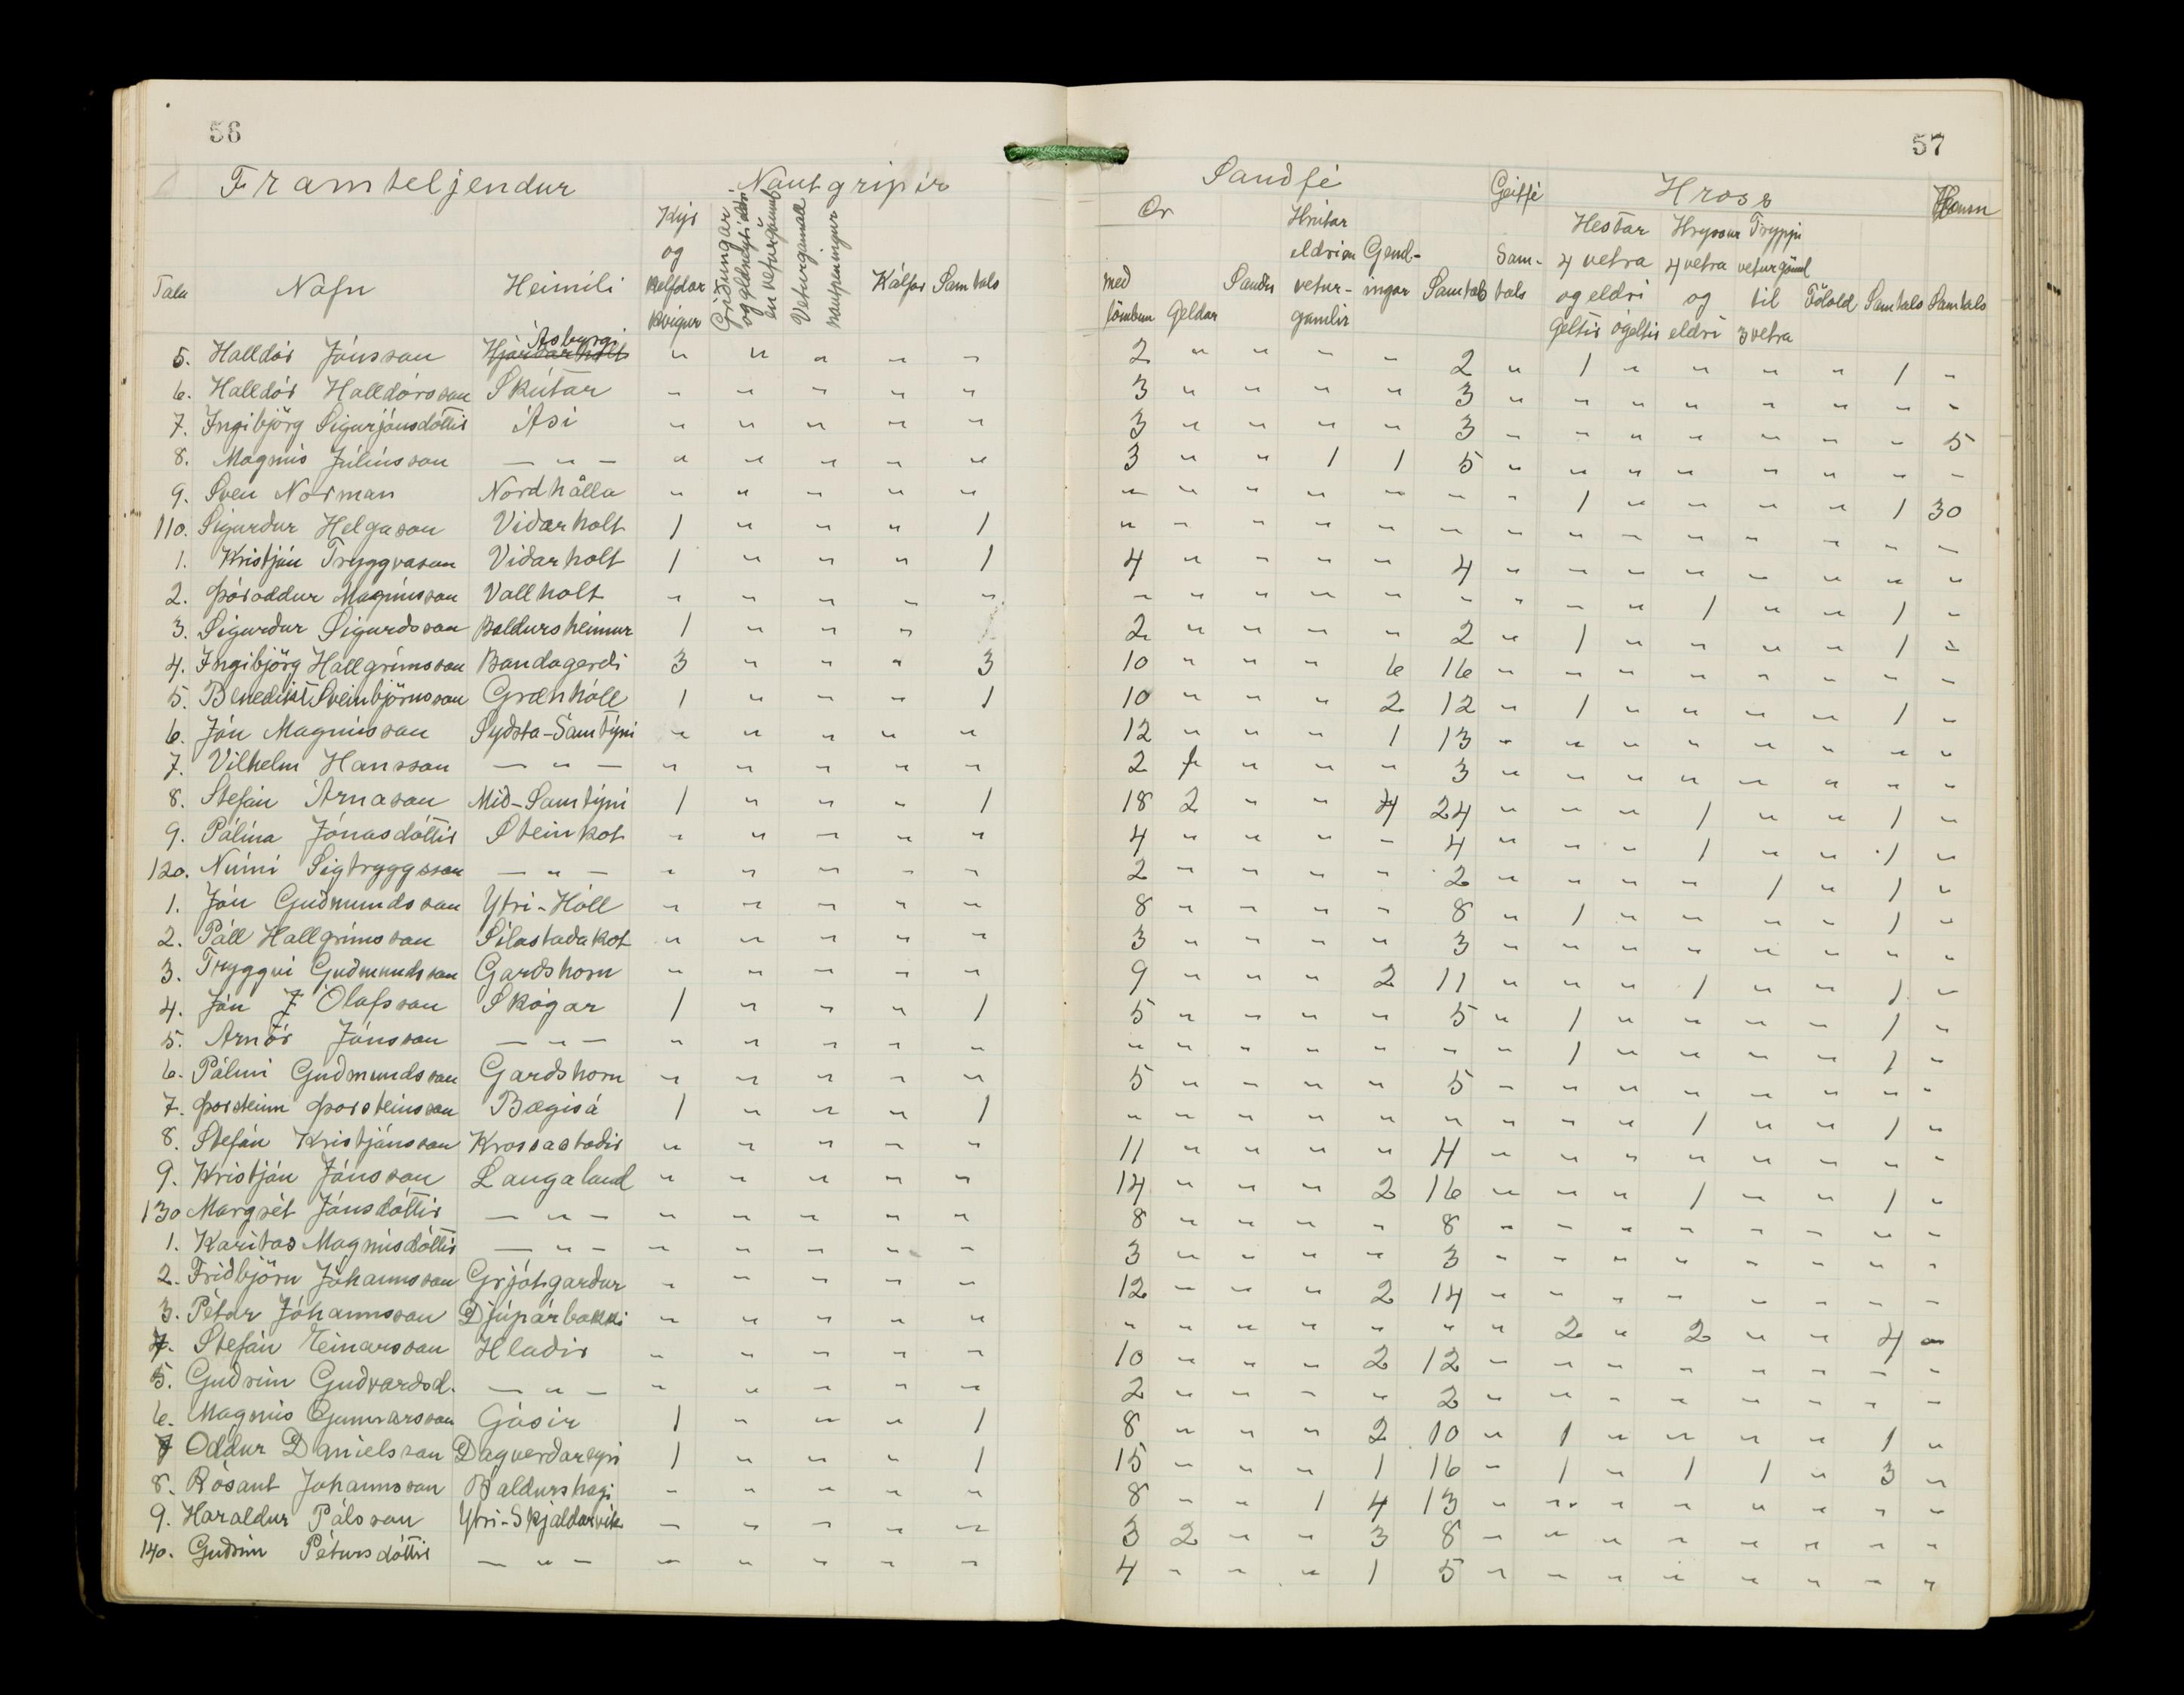 56
57
Framteljendur Nautgripir
Sauðfé Geitfé Hross Hænsn
Tala Nafn Heimili Kýr og kelfdar kvígur Griðungar og geldneyti eldri en veturgömul Veturgamall nautpeningur Kálfar Samtals
Ær með lömbum Geldar Sauðir Hrútar eldri en veturgamlir Gemlingar Samtals Samtals Hestar 4 vetra og eldri Geltir ógeltir Hryssur 4 vetra og eldri Tryppi veturgömul til 3 vetra Fölold Samtals Samtals
5. Halldór Jónsson Hjarðarholt Ásburgi " " " " " 2 " " " " 2 " 1 " " " " 1 "
6. Halldór Halldórsson Skútar " " " " " 3 " " " " 3 " " " " " " " "
7. Ingibjörg Sigurjónsdóttir Ási " " " " " 3 " " " " 3 " " " " " " " 5
8. Magnús Júlíusson — " — " " " " " 3 " " 1 1 5 " " " " " " " "
9. Sven Norman Nordhålla " " " " " " " " " " " " 1 " " " " 1 30
110. Sigurður Helgason Viðarholt 1 " " " 1 " " " " " " " " " " " " " "
1. Kristján Tryggvason Viðarholt 1 " " " 1 4 " " " " 4 " " " " " " " "
2. Þóroddur Magnússon Vallholt " " " " " " " " " " " " " " 1 " " 1 "
3. Sigurður Sigurðsson Baldursheimur 1 " " " 2 " " " " 2 " 1 " " " " 1 "
4. Ingibjörg Hallgrímsson Bandagerði 3 " " " 3 10 " " " 6 16 " " " " " " " "
5. Benedikt Sveinbjörnsson Grænhóll 1 " " " 1 10 " " " 2 12 " 1 " " " " 1 "
6. Jón Magnússon Syðsta-Samtýni " " " " " 12 " " " 1 13 " " " " " " " "
7. Vilhelm Hansson — " — " " " " " 2 1 " " " 3 " " " " " " " "
8. Stefán Árnason Mið-Samtýni 1 " " " 1 18 2 " " 4 24 " " " 1 " " 1 "
9. Pálína Jónasdóttir Steinkot " " " " " 4 " " " " 4 " " " 1 " " 1 "
120. Númi Sigtryggsson — " — " " " " " 2 " " " " 2 " " " " 1 " 1 "
1. Jón Guðmundsson Ytri-Hóll " " " " " 8 " " " " 8 " 1 " " " " 1 "
2. Páll Hallgrímsson Sílastaðakot " " " " " 3 " " " " 3 " " " " " " " "
3. Tryggvi Guðmundsson Garðshorn " " " " " 9 " " " 2 11 " " " 1 " " 1 "
4. Jón J Ólafsson Skógar 1 " " " 1 5 " " " " 5 " 1 " " " " 1 "
5. Arnór Jónsson — " — " " " " " " " " " " " " 1 " " " " 1 "
6. Pálmi Guðmundsson Garðshorn " " " " " 5 " " " " 5 " " " " " " " "
7. Þorsteinn Þorsteinsson Bægisá 1 " " " 1 " " " " " " " " " 1 " " 1 "
8. Stefán Kristjánsson Krossastaðir " " " " " 11 " " " " 11 " " " " " " " "
9. Kristján Jónsson Laugaland " " " " " 14 " " " 2 16 " " " 1 " " 1 "
130 Margrét Jónsdóttir — " — " " " " " 8 " " " " 8 " " " " " " " "
1. Karítas Magnúsdóttir — " — " " " " " 3 " " " " 3 " " " " " " " "
2. Friðbjörn Jóhannsson Grjótgarður " " " " " 12 " " " 2 14 " " " " " " " "
3. Pétur Jóhannsson Djúpárbakki " " " " " " " " " " " " 2 " 2 " " 4 "
4. Stefán Einarsson Hlaðir " " " " " 10 " " " 2 12 " " " " " " " "
5. Guðrún Guðvarðsd. — " — " " " " " 2 " " " " 2 " " " " " " " "
6. Magnús Gunnarsson Gásir 1 " " " 1 8 " " " 2 10 " 1 " " " " 1 "
7 Oddur Daníelsson Dagverðareyri 1 " " " 1 15 " " " 1 16 " 1 " 1 1 " 3 "
8. Rósant Jóhannsson Baldurshagi " " " " " 8 " " 1 4 13 " " " " " " " "
9. Haraldur Pálsson Ytri-Skjaldarvík " " " " " 3 2 " " 3 8 " " " " " " " "
140. Guðrún Pétursdóttir — " — " " " " " 4 " " " 1 5 " " " " " " " "